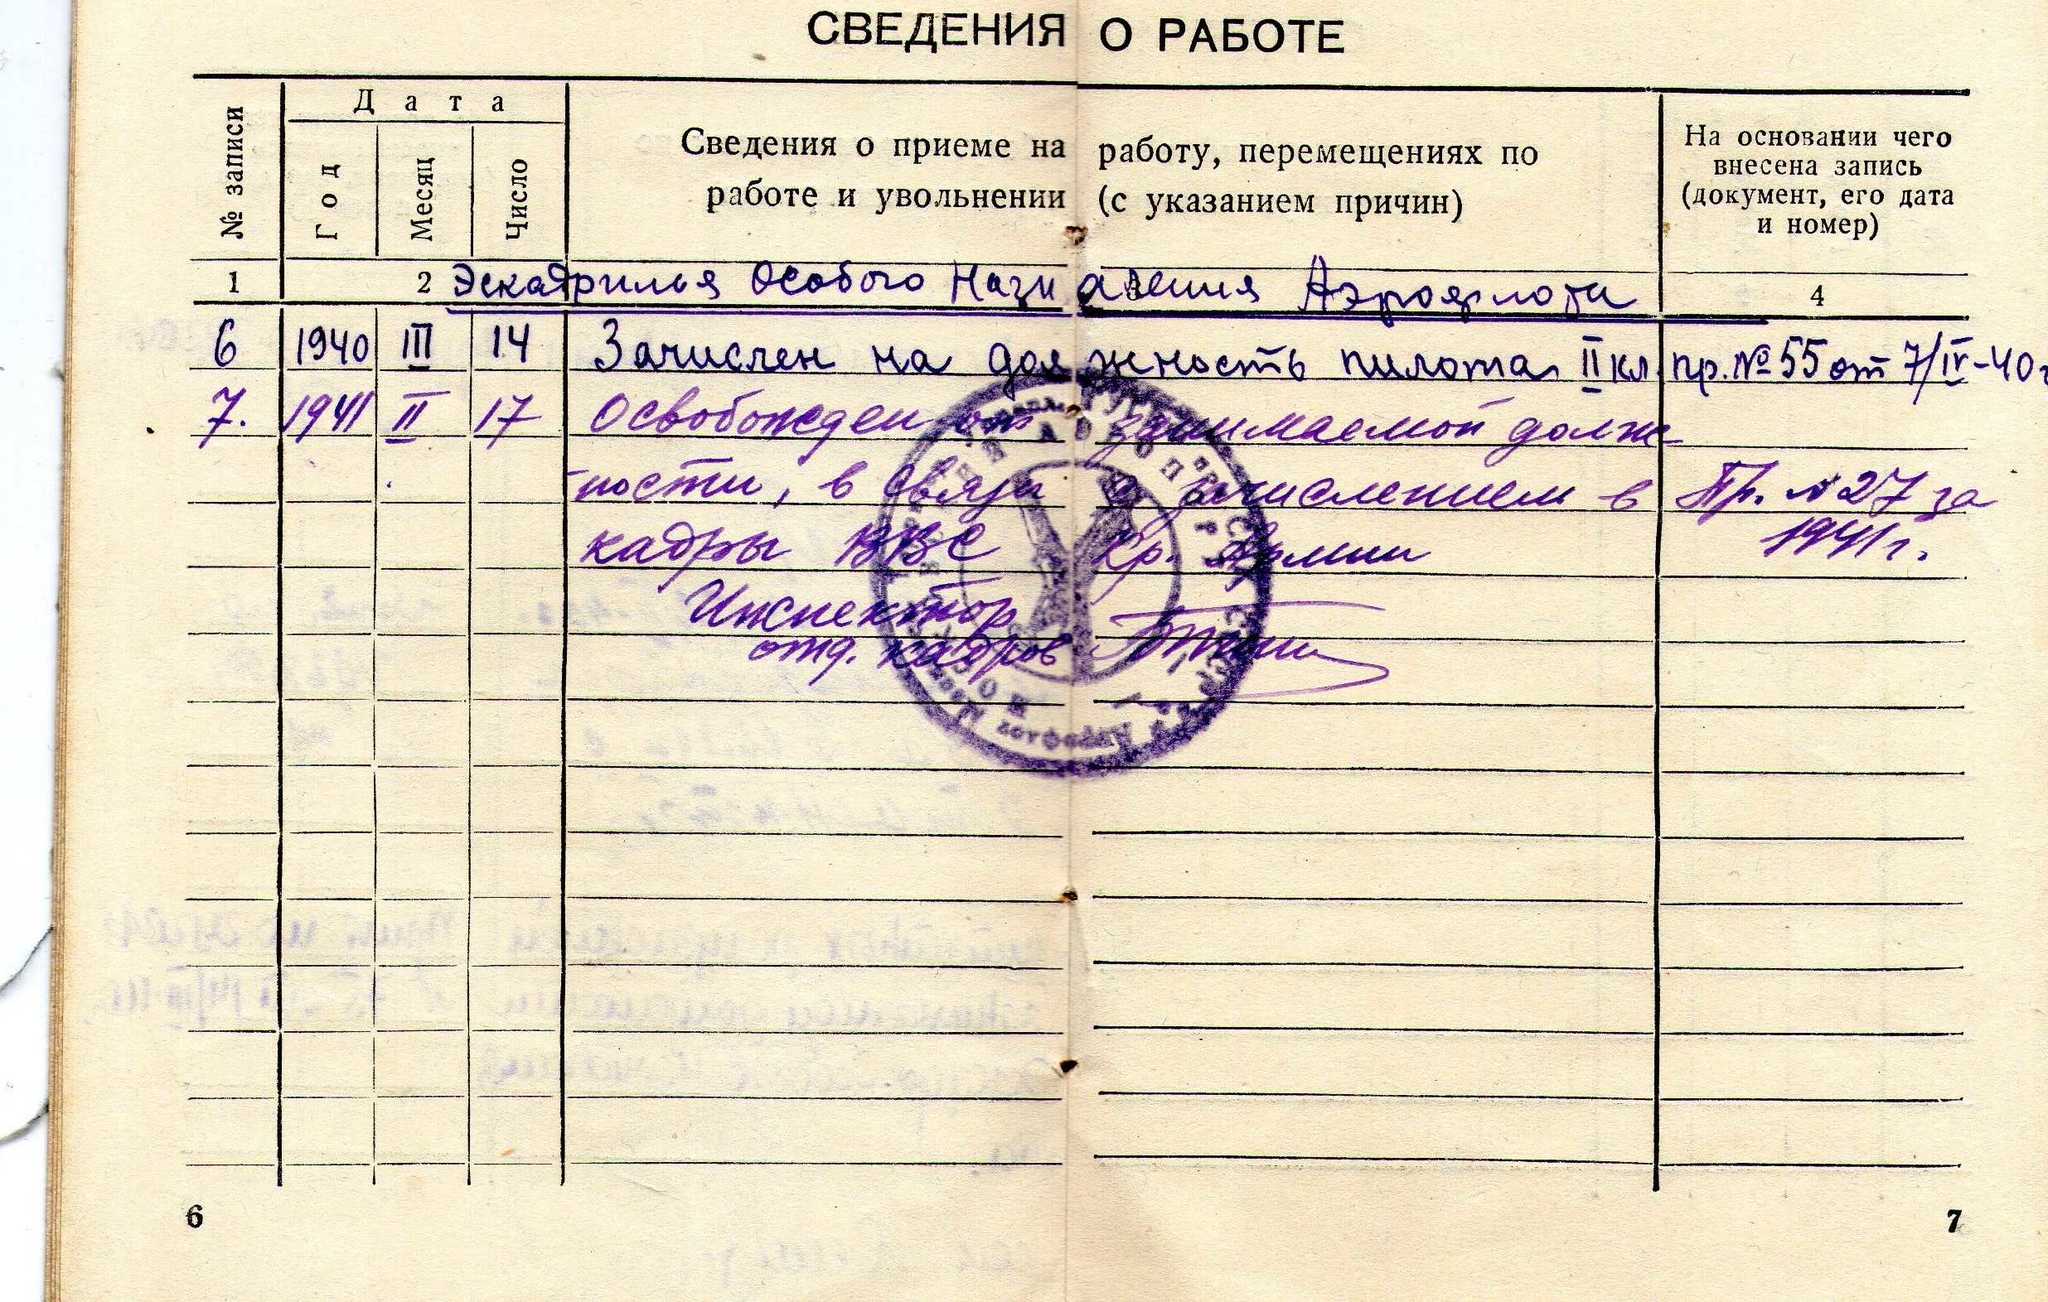 СВЕДЕНИЯ О РАБОТЕ
№ записи
Дата
Год
Месяц
Число
Сведения о приеме на работу, перемещениях по
работе и увольнении (с указанием причин)
На основании чего
внесена запись
(документ, его дата
и номер)
1 2 3 4
Эскадрилья Особого Назначения Аэрофлота
6 1940 III 14 Зачислен на должность пилота II кл. пр. № 55 от 7/IV-40г
7. 1941 II 17 Освобожден от занимаемой долж
ности, в связи с зачислением в Пр. № 27 за
кадры ВВС Кр. Армии 1941 г.
Инспектор
отд. кадров
6 7